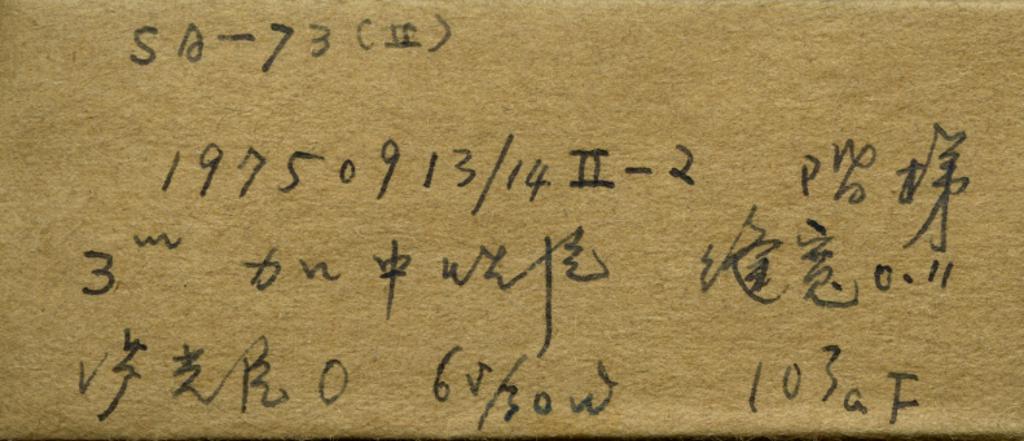 SA-73(II)
19750913/14 II-2 阶梯
3m 加中性 缝宽0.11
光 0 6V/30W 103aF